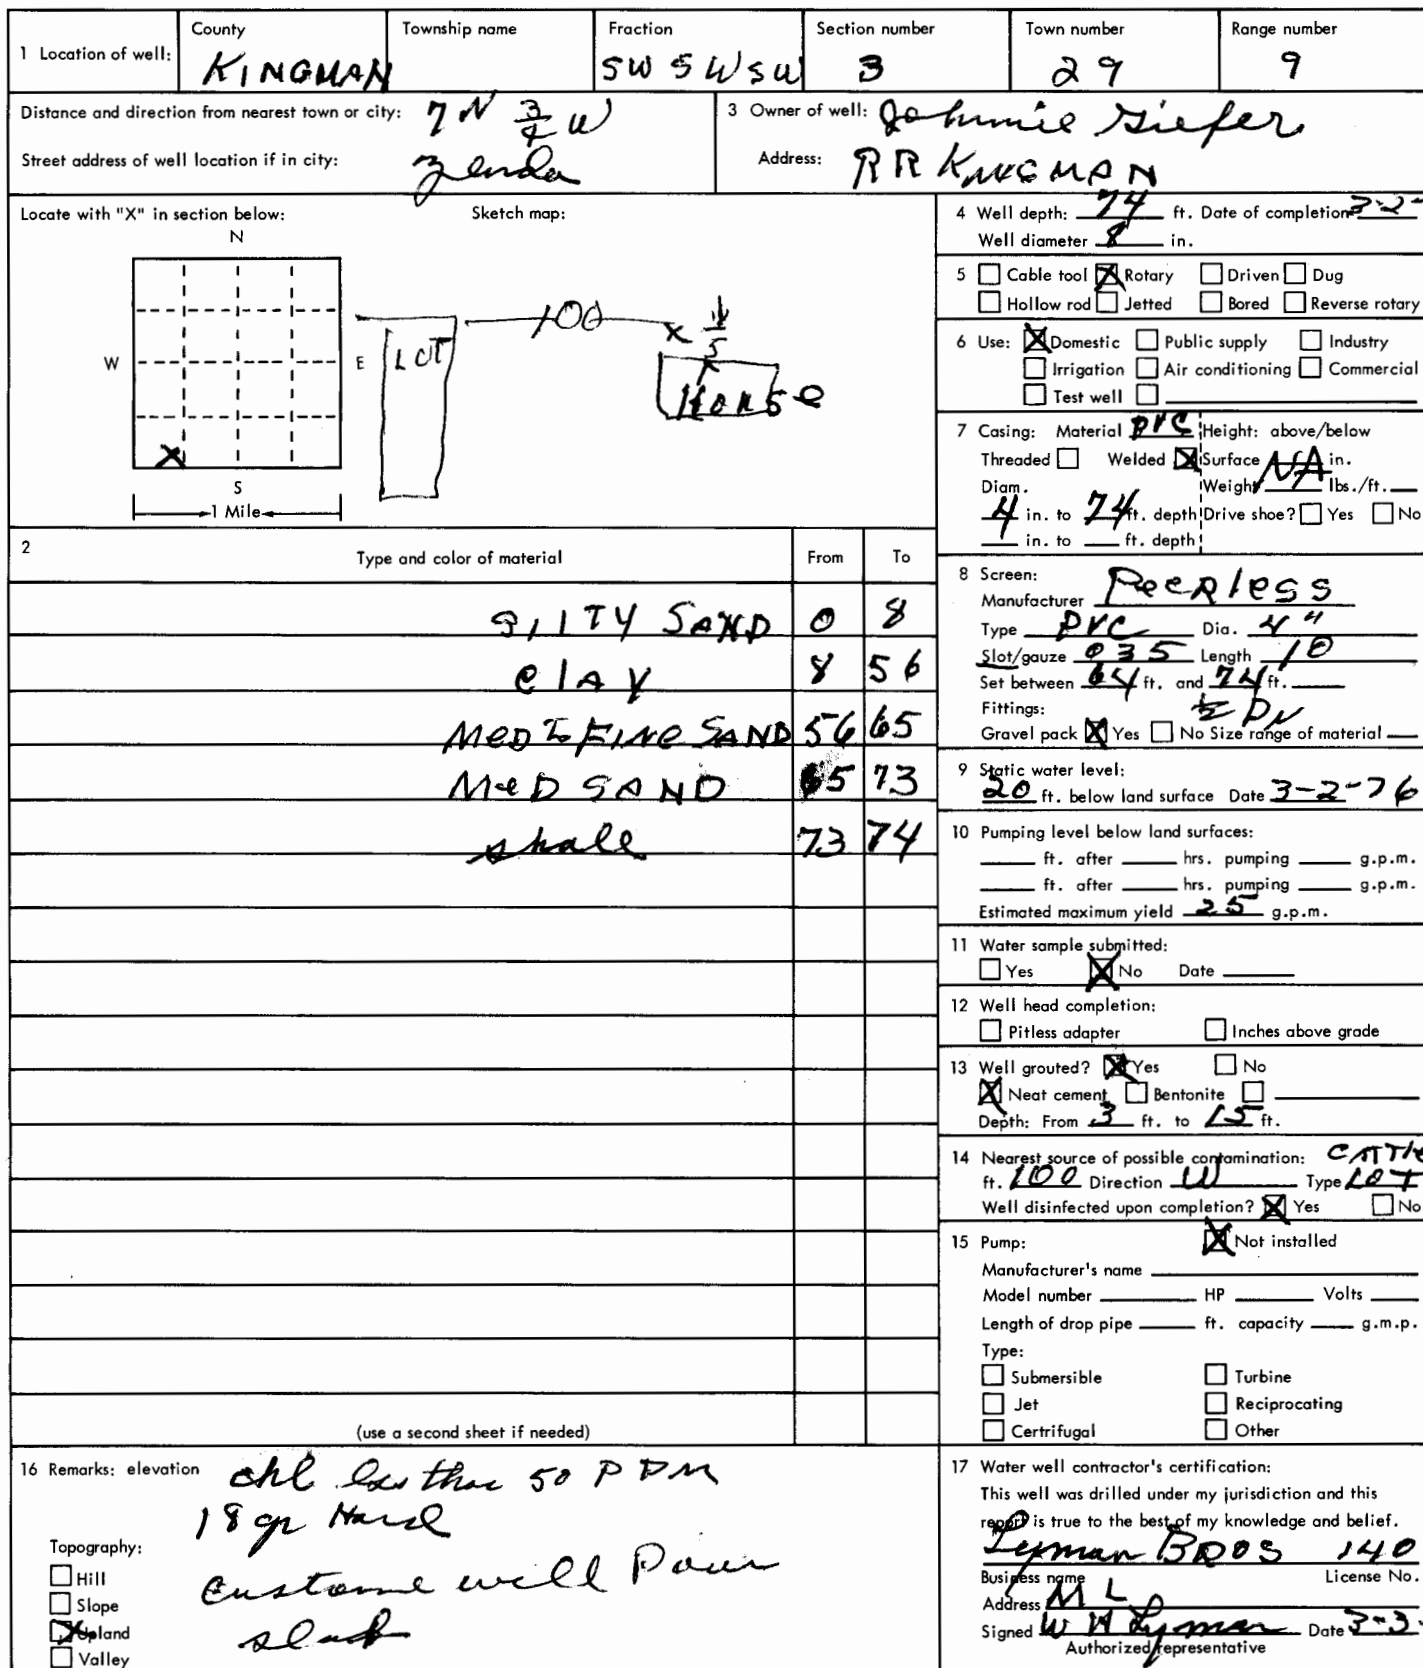 1 Location of well: County KINGMAN Township name Fraction SW SW SW Section number 3 Town number 29 Range number 9
Distance and direction from nearest town or city: 7 N 3/4 W
Street address of well location if in city: Zenda
3 Owner of well: Johnnie Giefer
Address: RR KINGMAN
Locate with "X" in section below: Sketch map:
N
W E
X
S
1 Mile
LOT 100 X 5 HOUSE
4 Well depth: 74 ft. Date of completion 3-2-
Well diameter 8 in.
5 Cable tool X Rotary Driven Dug
Hollow rod Jetted Bored Reverse rotary
6 Use: X Domestic Public supply Industry
Irrigation Air conditioning Commercial
Test well
7 Casing: Material PVC Height: above/below
Threaded Welded X Surface NA in.
Diam. Weight lbs./ft.
4 in. to 74 ft. depth Drive shoe? Yes No
in. to ft. depth
2 Type and color of material From To
SILTY SAND 0 8
CLAY 8 56
MED to FINE SAND 56 65
MED SAND 65 73
shale 73 74
(use a second sheet if needed)
8 Screen:
Manufacturer Peerless
Type PVC Dia. 4"
Slot/gauze 035 Length 10
Set between 64 ft. and 74 ft.
Fittings:
Gravel pack X Yes No Size range of material
9 Static water level:
20 ft. below land surface Date 3-2-76
10 Pumping level below land surfaces:
ft. after hrs. pumping g.p.m.
ft. after hrs. pumping g.p.m.
Estimated maximum yield 25 g.p.m.
11 Water sample submitted:
Yes X No Date
12 Well head completion:
Pitless adapter Inches above grade
13 Well grouted? X Yes No
X Neat cement Bentonite
Depth: From 3 ft. to 15 ft.
14 Nearest source of possible contamination: CATTLE
ft. 100 Direction W Type LOT
Well disinfected upon completion? X Yes No
15 Pump: X Not installed
Manufacturer's name
Model number HP Volts
Length of drop pipe ft. capacity g.m.p.
Type:
Submersible Turbine
Jet Reciprocating
Certrifugal Other
16 Remarks: elevation chl less than 50 PPM
18 gr Hard
Custome will Pour
slab
Topography:
Hill
Slope
X Upland
Valley
17 Water well contractor's certification:
This well was drilled under my jurisdiction and this
report is true to the best of my knowledge and belief.
Lyman BROS 140
Business name License No.
Address M L
Signed W H Lyman Date 3-3-
Authorized representative